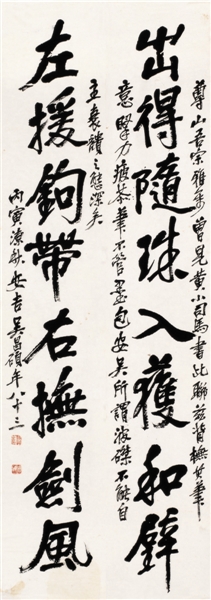 尊山吾宗雅屬曾見黃小司馬書此聯茲背撫其筆
出得隨珠入獲和璧
意掔力疲苶筆不管墨包安吳所謂波磔不能自
主衰憊之態深矣
左援鉤帶右撫劍風
丙寅涼秋安吉吳昌碩年八十三